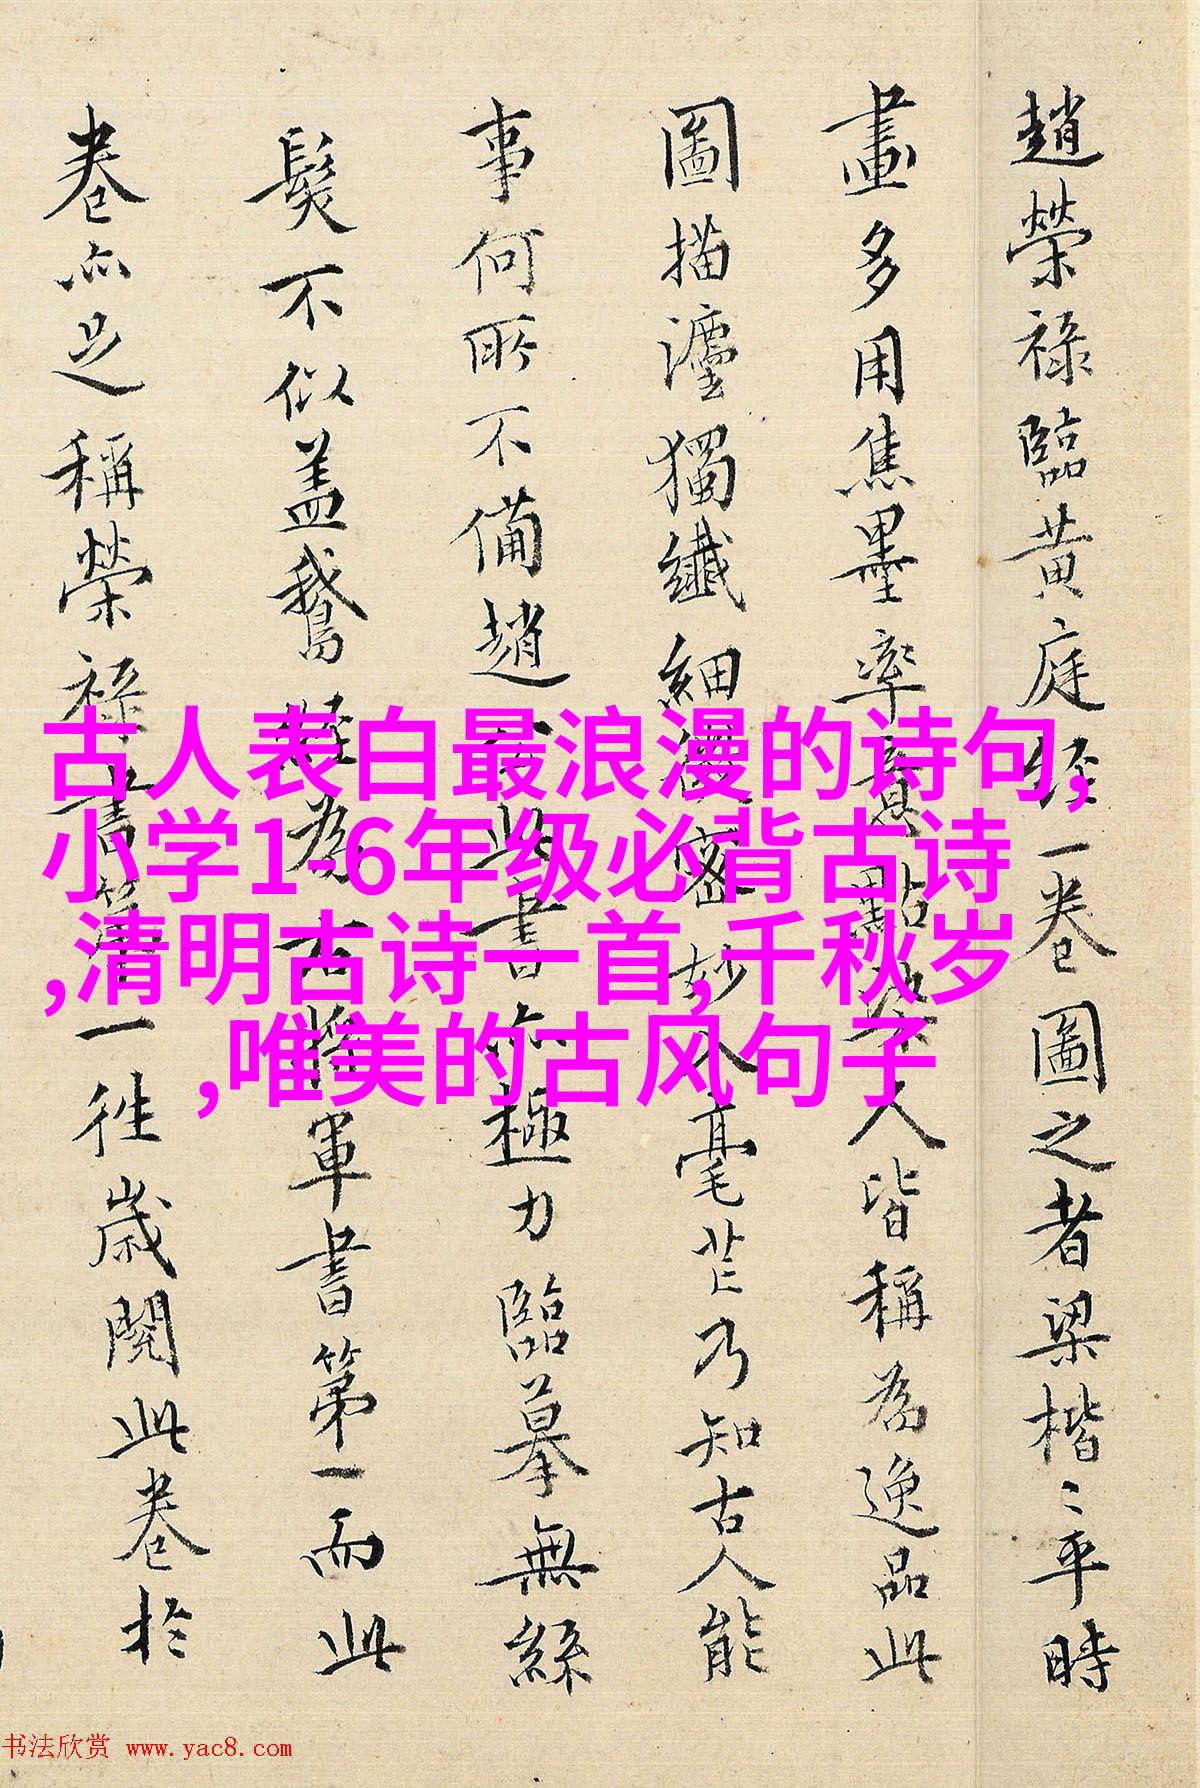 趙榮祿臨黃庭經一卷圖之者梁楷〻平時
畫多用焦墨率意點染人皆稱為逸品此
圖描灋獨纖細縝密妙入毫芒乃知古人能
事何所不備趙公此書亦極力臨摹無絲
髮不似盖鵝經為右將軍書第一而此
卷亦足稱榮祿書第一徃歲閱此卷於
古人表白最浪漫的诗句,
小学1-6年级必背古诗
,清明古诗一首,千秋岁
,唯美的古风句子
书法欣赏 www.yac8.com